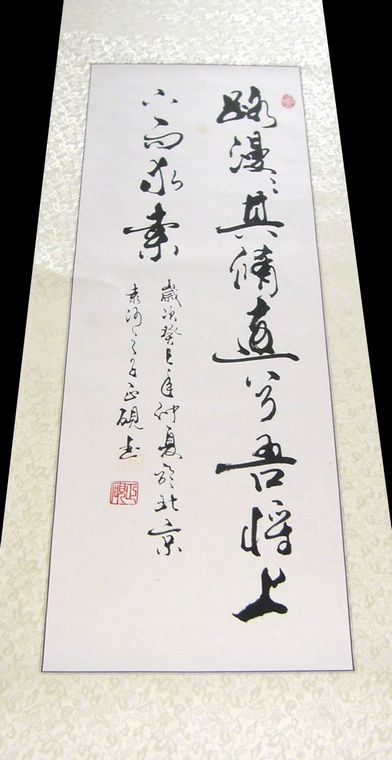 路漫漫其脩遠兮吾将上
下而求索
歲次癸巳年仲夏於北京
正硯書